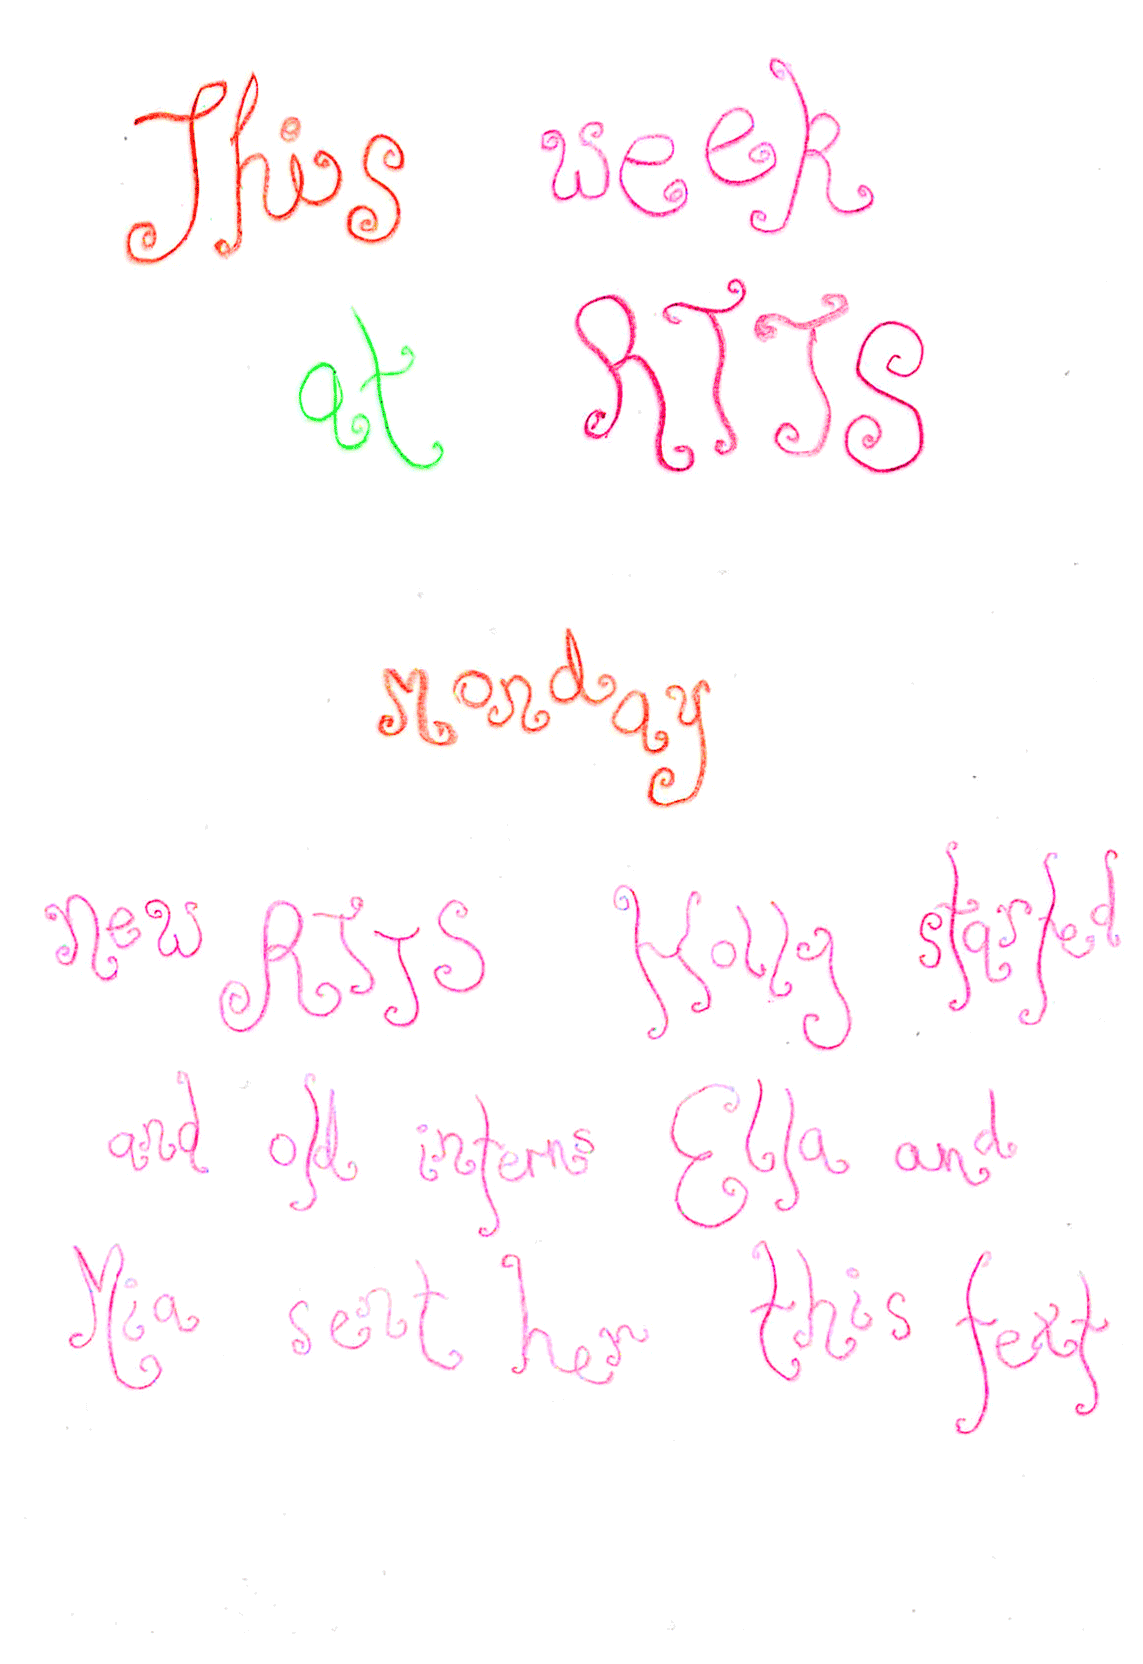 This week
at RTTS
Monday
new RTTS Holly started
and old interns Ella and
Mia sent her this text